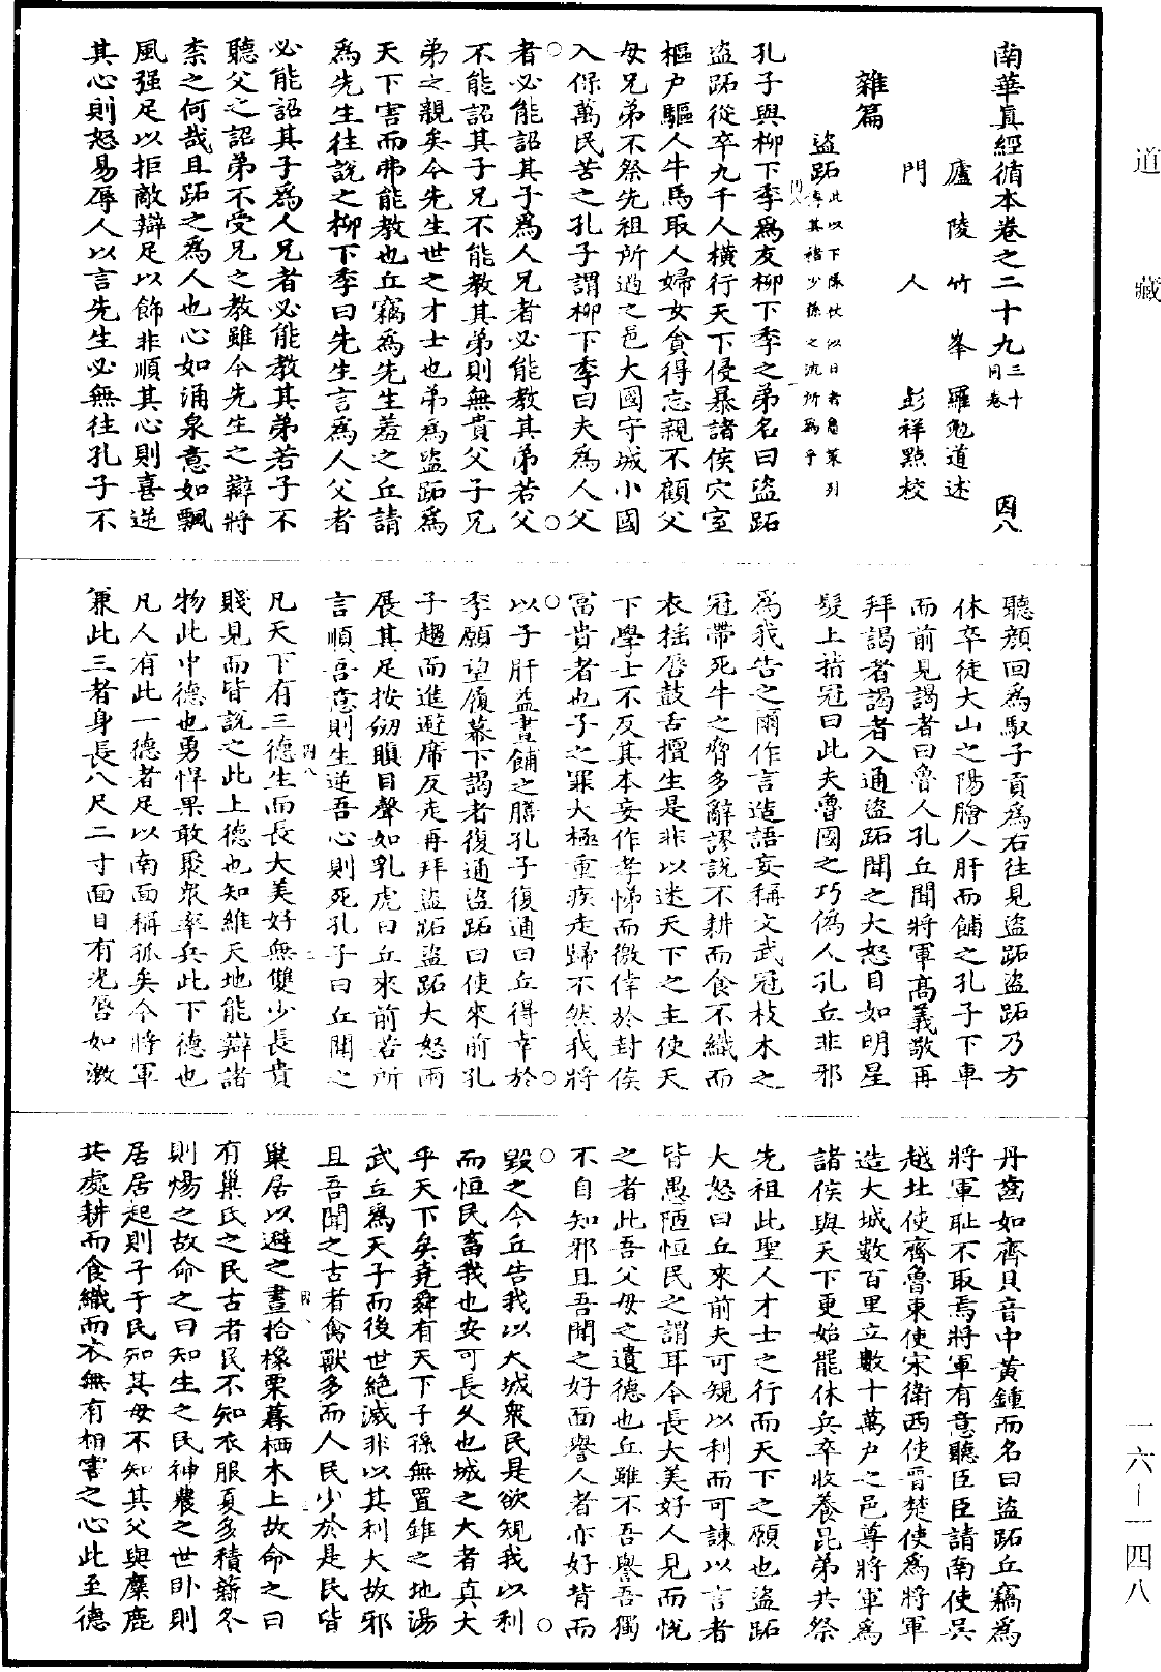 道藏
南華真經循本卷之二十九三十同卷 因八
廬陵竹峯羅勉道述
門人彭祥點校
雜篇
盜跖此以下係
孔子與柳下季為友柳下季之弟名曰盜跖
盜跖從卒九千人橫行天下侵暴諸侯穴室
樞户驅人牛馬取人婦女貪得忘親不顧父
母兄弟不祭先祖所過之邑大國守城小國
入保萬民苦之孔子謂柳下季曰夫為人父
者必能詔其子為人兄者必能教其弟若父
不能詔其子兄不能教其弟則無貴父子兄
弟之親矣今先生世之才士也弟為盜跖為
天下害而弗能教也丘竊為先生羞之丘請
為先生往說之柳下季曰先生言為人父者
必能詔其子為人兄者必能教其弟若子不
聽父之詔弟不受兄之教雖今先生之辯將
柰之何哉且跖之為人也心如涌泉意如飄
風强足以拒敵辯足以飾非順其心則喜逆
其心則怒易辱人以言先生必無往孔子不
聽顏回為馭子貢為右往見盜跖盜跖乃方
休卒徒大山之陽膾人肝而餔之孔子下車
而前見謁者曰魯人孔丘聞將軍高義敬再
拜謁者謁者入通盜跖聞之大怒目如明星
髮上指冠曰此夫魯國之巧偽人孔丘非邪
為我告之爾作言造語妄稱文武冠枝木之
冠帶死牛之脅多辭謬說不耕而食不織而
衣搖唇鼓舌擅生是非以迷天下之主使天
下學士不反其本妄作孝悌而徼倖於封侯
富貴者也子之罪大極重疾走歸不然我將
以子肝益晝餔之膳孔子復通曰丘得幸於
季願望履幕下謁者復通盜跖曰使來前孔
子趨而進避席反走再拜盜跖盜跖大怒兩
展其足按劒瞋目聲如乳虎曰丘來前若所
言順吾意則生逆吾心則死孔子曰丘聞之
凡天下有三德生而長大美好無雙少長貴
賤見而皆說之此上德也知維天地能辯諸
物此中德也勇悍果敢聚衆率兵此下德也
凡人有此一德者足以南面稱孤矣今將軍
兼此三者身長八尺二寸面目有光唇如激
丹齒如齊貝音中黃鍾而名曰盜跖丘竊為
將軍耻不取焉將軍有意聽臣臣請南使吳
越北使齊魯東使宋衛西使晉楚使為將軍
造大城數百里立數十萬户之邑尊將軍為
諸侯與天下更始罷休兵卒收養昆弟共祭
先祖此聖人才士之行而天下之願也盜跖
大怒曰丘來前夫可規以利而可諫以言者
皆愚陋恒民之謂耳今長大美好人見而悅
之者此吾父母之遺德也丘雖不吾譽吾獨
不自知邪且吾聞之好面譽人者亦好背而
毀之今丘告我以大城衆民是欲規我以利
而恒民畜我也安可長久也城之大者莫大
乎天下矣堯舜有天下子孫無置錐之地湯
武立為天子而後世絕滅非以其利大故邪
且吾聞之古者禽獸多而人民少於是民皆
巢居以避之晝拾橡栗暮栖木上故命之曰
有巢氏之民古者民不知衣服夏多積薪冬
則煬之故命之曰知生之民神農之世卧則
居居起則于于民知其母不知其父與麋鹿
共處耕而食織而衣無有相害之心此至德
一六—一四八